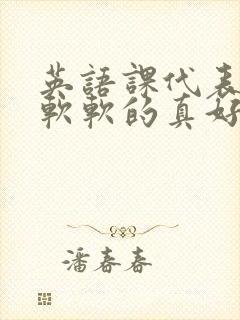 英語課代表
軟軟的真好
潘春春